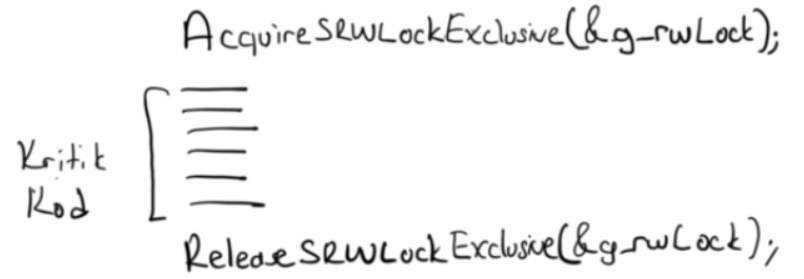 AcquireSRWLockExclusive(&g_rwLock);
Kritik
Kod
ReleaseSRWLockExclusive(&g_rwLock);